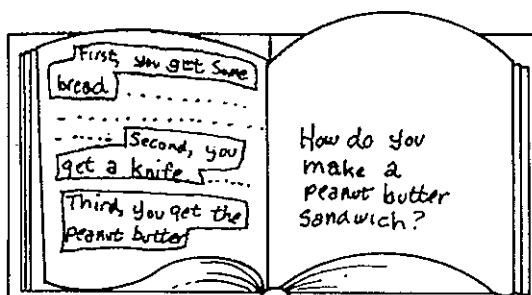 First, you get some
bread
Second, you
get a knife
Third, you get the
peanut butter
How do you
make a
peanut butter
sandwich?